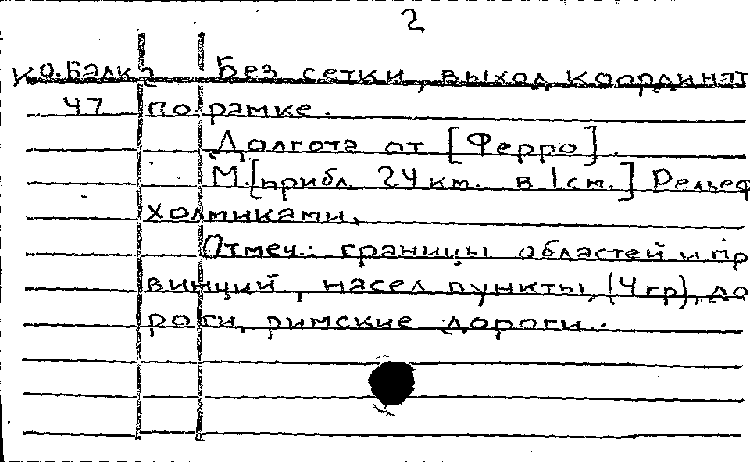 2
Ко.Балк Без сетки, выход координат
47 по рамке.
Долгота от [Ферро].
М.[прибл. 24 км. в 1 см.] Рельеф
холмиками.
Отмеч.: границы областей и про
винций, насел пункты, (4гр), до
роги, римские дороги.